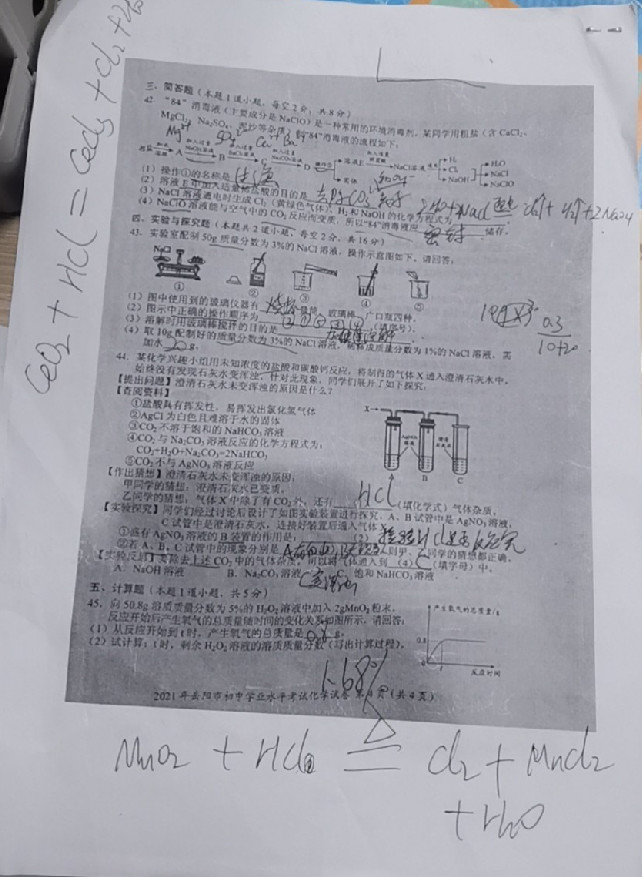 CeO2 + HCl = CeCl3 + Cl2 + H2O
三、简答题（本题1道小题，每空2分，共8分）
42. “84”消毒液（主要成分是NaClO）是一种常用的环境消毒剂。某同学用粗盐（含CaCl2、
MgCl2、Na2SO4、泥沙等杂质）制“84”消毒液的流程如下。
（1）操作①的名称是 过滤
（2）溶液E中加入适量稀盐酸的目的是
（3）NaCl溶液通电时生成Cl2（黄绿色气体）、H2和NaOH的化学方程式为
（4）NaClO溶液能与空气中的CO2反应而变质，所以“84”消毒液应 密封 储存。
四、实验与探究题（本题共2道小题，每空2分，共16分）
43. 实验室配制50g质量分数为3%的NaCl溶液，操作示意图如下。请回答：
NaCl
① ② ③ ④ ⑤
（1）图中使用到的玻璃仪器有 烧杯 、量筒、玻璃棒、广口瓶四种。
（2）图示中正确的操作顺序为 （填序号）。
（3）溶解时用玻璃棒搅拌的目的是
（4）取10g配制好的质量分数为3%的NaCl溶液，稀释成质量分数为1%的NaCl溶液，需
加水 20 g。
0.3
10+20
44. 某化学兴趣小组用未知浓度的盐酸和碳酸钙反应，将制得的气体X通入澄清石灰水中，
始终没有发现石灰水变浑浊。针对此现象，同学们展开了如下探究。
【提出问题】澄清石灰水未变浑浊的原因是什么？
【查阅资料】
①盐酸具有挥发性，易挥发出氯化氢气体
②AgCl为白色且难溶于水的固体
③CO2不溶于饱和的NaHCO3溶液
④CO2与Na2CO3溶液反应的化学方程式为：
CO2+H2O+Na2CO3=2NaHCO3
⑤CO2不与AgNO3溶液反应
X
A B C
【作出猜想】澄清石灰水未变浑浊的原因。
甲同学的猜想：澄清石灰水已变质。
乙同学的猜想：气体X中除了有CO2外，还有 HCl （填化学式）气体杂质。
【实验探究】同学们经过讨论后设计了如图实验装置进行探究，A、B试管中是AgNO3溶液，
C试管中是澄清石灰水，连接好装置后通入气体
①盛有AgNO3溶液的B装置的作用是：（2）
②若A、B、C试管中的现象分别是 则甲、乙同学的猜想都正确。
【实验反思】要除去上述CO2中的气体杂质，可以将气体通入到（4） C （填字母）中。
A. NaOH溶液 B. Na2CO3溶液 C. 饱和NaHCO3溶液
五、计算题（本题1道小题，共5分）
45. 向50.8g溶质质量分数为5%的H2O2溶液中加入2gMnO2粉末，
反应开始后产生氧气的总质量随时间的变化关系如图所示，请回答：
（1）从反应开始到t时，产生氧气的总质量是 0.8 g；
（2）试计算：t时，剩余H2O2溶液的溶质质量分数（写出计算过程）。
产生氧气的总质量/g
0.8
0
反应时间
1.68%
2021年岳阳市初中学业水平考试化学试卷 第4页（共4页）
MnO2 + HCl △= Cl2 + MnCl2
+ H2O